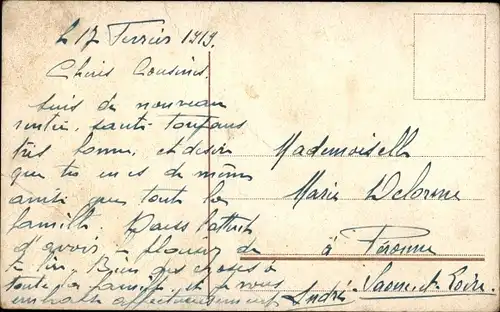 le 17 Février 1919.
Chères Cousines
suis de nouveau
rentré, santé toujours
très bonne, et désire
que tu en es de même
ainsi que toute la
famille. Dans l'attente
d'avoir le plaisir de
te lire. Bien des choses à
toute la famille et je vous
embrasse affectueusement André
Mademoiselle
Marie Delorme
à Péronne
Saone-et-Loire.